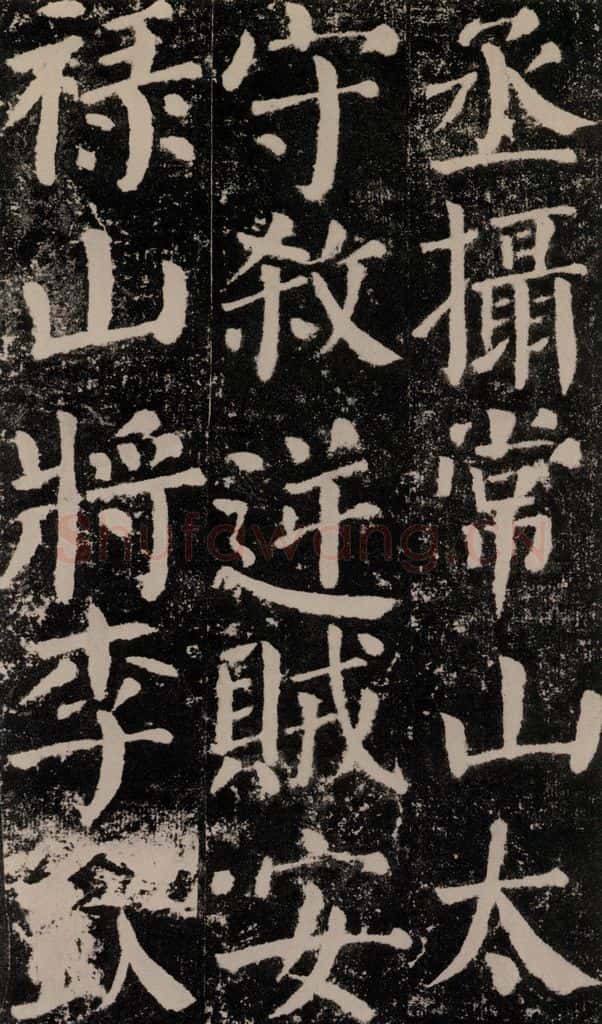 丞攝常山太
守殺逆賊安
禄山將李欽
Shufawang.CN